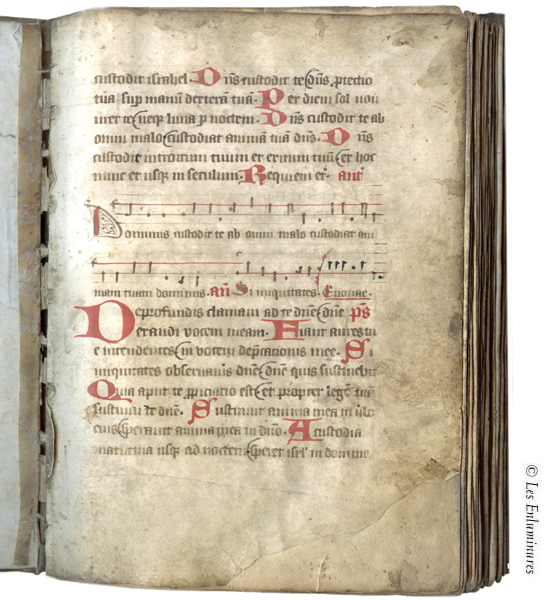 custodit israhel. Dn̄s custodit te dn̄s ꝓtectio
tua sup manū dexterā tuā. Per diem sol non
uret te neqꝫ luna ꝑ noctem. Dn̄s custodit te ab
omni malo custodiat animā tuā dn̄s. Dn̄s
custodit introitum tuum et exitum tuū ex hoc
nunc et usqꝫ in seculum. Requiem et̄. an̄
Dominus custodit te ab omni malo custodiat ani
mam tuam dominus. an̄ Si iniquitates. Euouae.
De profundis clamaui ad te dn̄e dn̄e p̄s
exaudi vocem meam. Fiant aures tu
e intendentes in vocem dep̄cationis mee. Si
iniquitates obseruaueris dn̄e dn̄e quis sustinebit
Quia aput te ꝓpiciacio est et propter legē tuā
sustinui te dn̄e. Sustinuit anima mea in ūbo
eius sperauit anima mea in dn̄o. A custodia
matutina usqꝫ ad noctem speret isr̄l in domino
© Les Enluminures